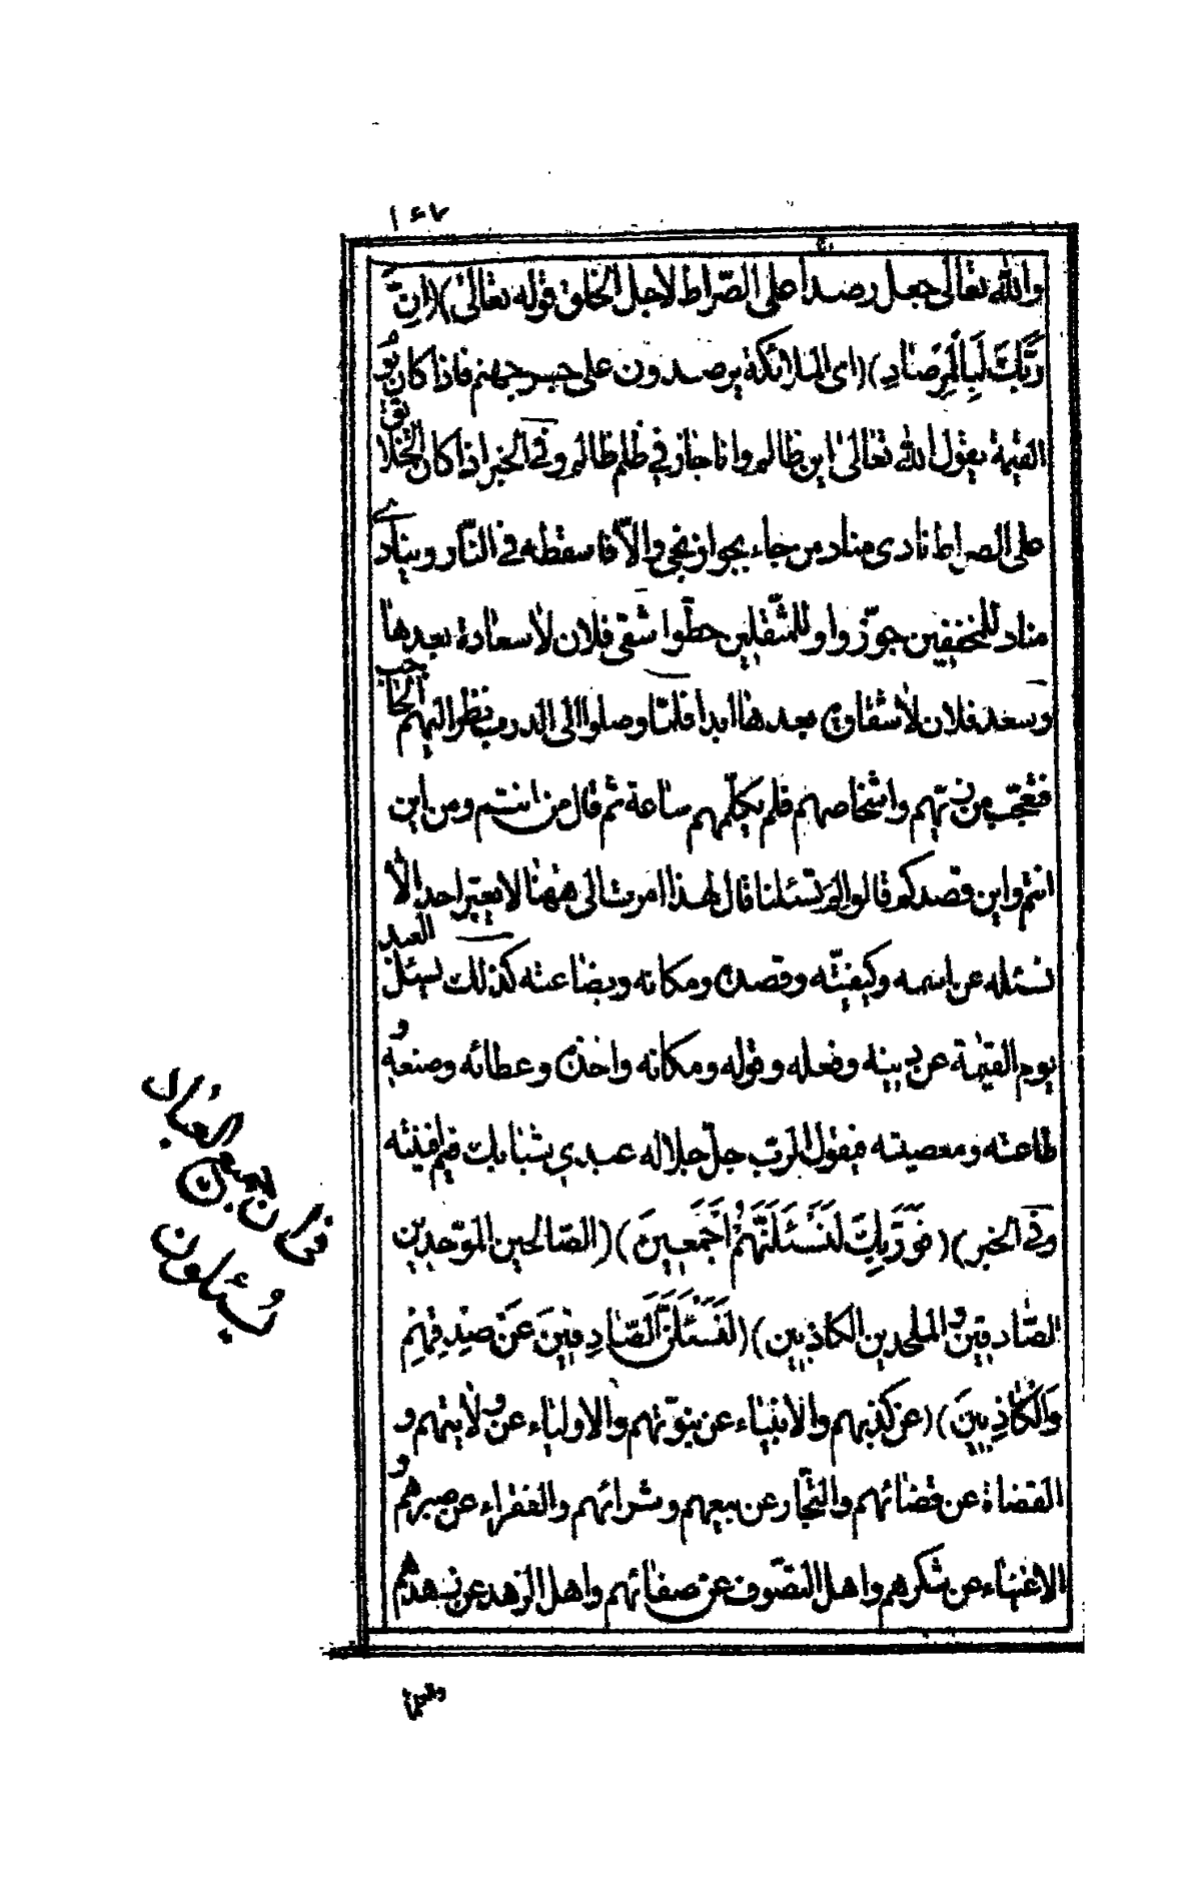 ١٤٧
والله تعالى جعل رصدا على الصّراط لاجل الخلق قوله تعالى)(اِنَّ
رَبَّكَ لَبِالْمِرْصَادِ)(اى الملائكة يرصدون على جسر جهنم فاذا كان يوم
القيمة يقول الله تعالى اين ظالم وانا جاز في ظلم ظالم وفى الخبر اذا كان الخلائق
على الصراط نادى مناد من جاء بجواز نجى والاّ فاسقطه فى النّار وينادى
مناد للمخففين جوّزوا وللمثّقلين حطّوا شقى فلان لا سعادة بعدها
وسعد فلان لا شقاوة بعدها ابدا فلمّا وصلوا الى الدرب نظر اليهم الحاجب
فتعجّب من زيّهم واشخاصهم فلم يكلّمهم ساعة ثم قال من انتم ومن اين
انتم واين قصدكم قالوا لم تسئلنا قال لهذا امرت الى ههنا لا يعبر احد الاّ
نسئله عن اسمه وكيفيّته وقصده ومكانه وبضاعته كذلك يسئل العبد
يوم القيمة عن دينه وفعله وقوله ومكانه واخذه وعطائه وصنعه و
طاعته ومعصيته فيقول الرب جلّ جلاله عبدي شبابك فيم افنيته
وفى الخبر)(فَوَرَبِّكَ لَنَسْئَلَنَّهُمْ اَجْمَعِينَ)(الصّالحين الموّحدين
الصّادقين و الملحدين الكاذبين)(لَنَسْئَلَنَّ الصَّادِقِينَ عَنْ صِدْقِهِمْ
وَالْكَاذِبِينَ)(عن كذبهم والانبياء عن نبوّتهم والاولياء عن ولايتهم و
القضاة عن قضائهم والتجّار عن بيعهم وشرائهم والفقراء عن صبرهم و
الاغنياء عن شكرهم واهل التصّوف عن صفائهم واهل الزهد عن زهدهم
فى ان جميع العباد
يسئلون